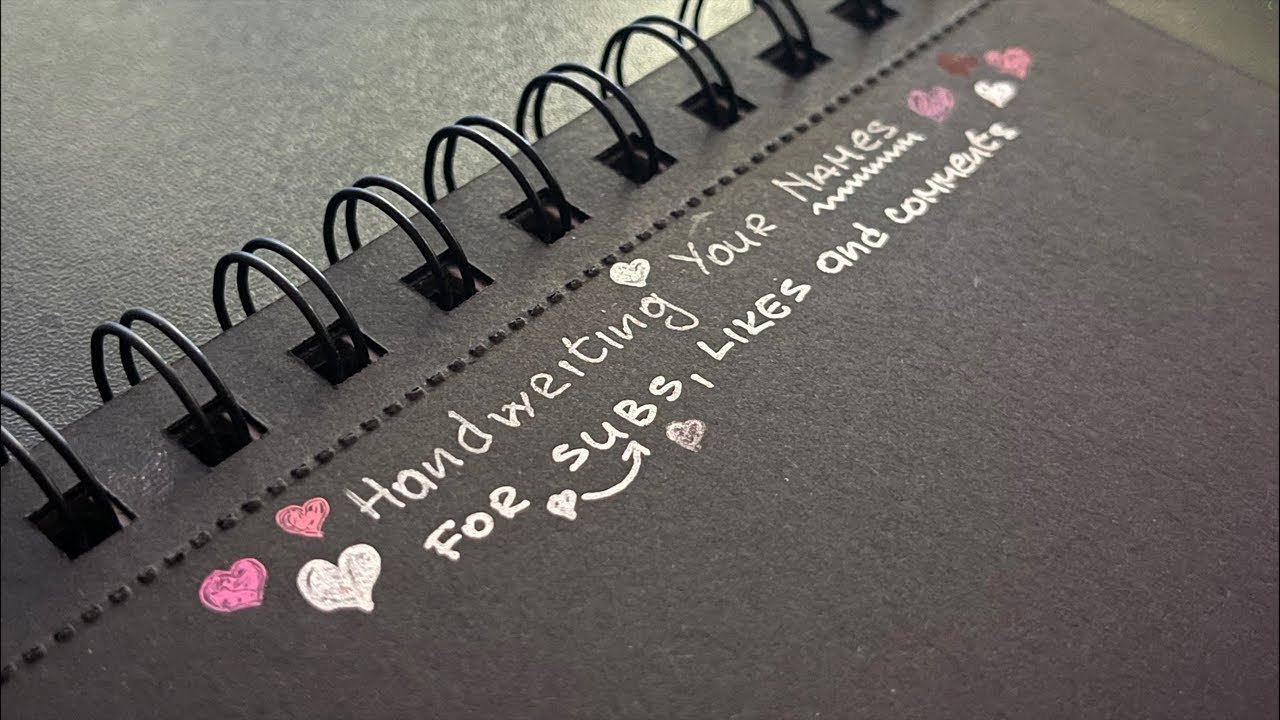 Handwriting Your Names
FOR SUBS, LIKES and comments